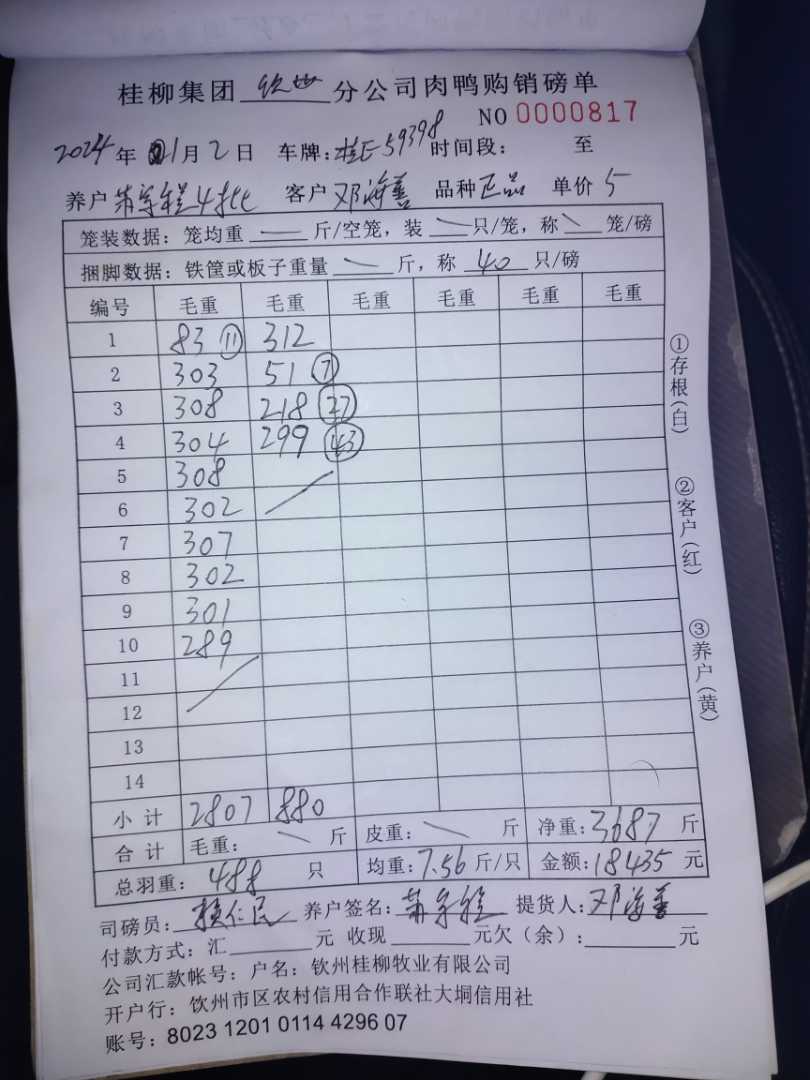 桂柳集团 钦州 分公司肉鸭购销磅单
NO 0000817
2024年 01月2日 车牌:桂E59398 时间段: 至
养户 4批 客户 邓海善 品种 正品 单价 5
笼装数据:笼均重 斤/空笼,装 只/笼,称 笼/磅
捆脚数据:铁筐或板子重量 斤,称 40 只/磅
编号 毛重 毛重 毛重 毛重 毛重 毛重
1 83 ⑪ 312
2 303 51 ⑦
3 308 218 ㉗
4 304 299 ㊸
5 308
6 302
7 307
8 302
9 301
10 289
11
12
13
14
小计 2807 880
合计 毛重: 斤 皮重: 斤 净重:3687 斤
总羽重: 488 只 均重:7.56 斤/只 金额:18435 元
司磅员: 养户签名: 提货人:邓海善
付款方式:汇 元 收现 元欠(余): 元
公司汇款帐号:户名:钦州桂柳牧业有限公司
开户行:饮州市区农村信用合作联社大垌信用社
账号:8023 1201 0114 4296 07
①存根(白)
②客户(红)
③养户(黄)